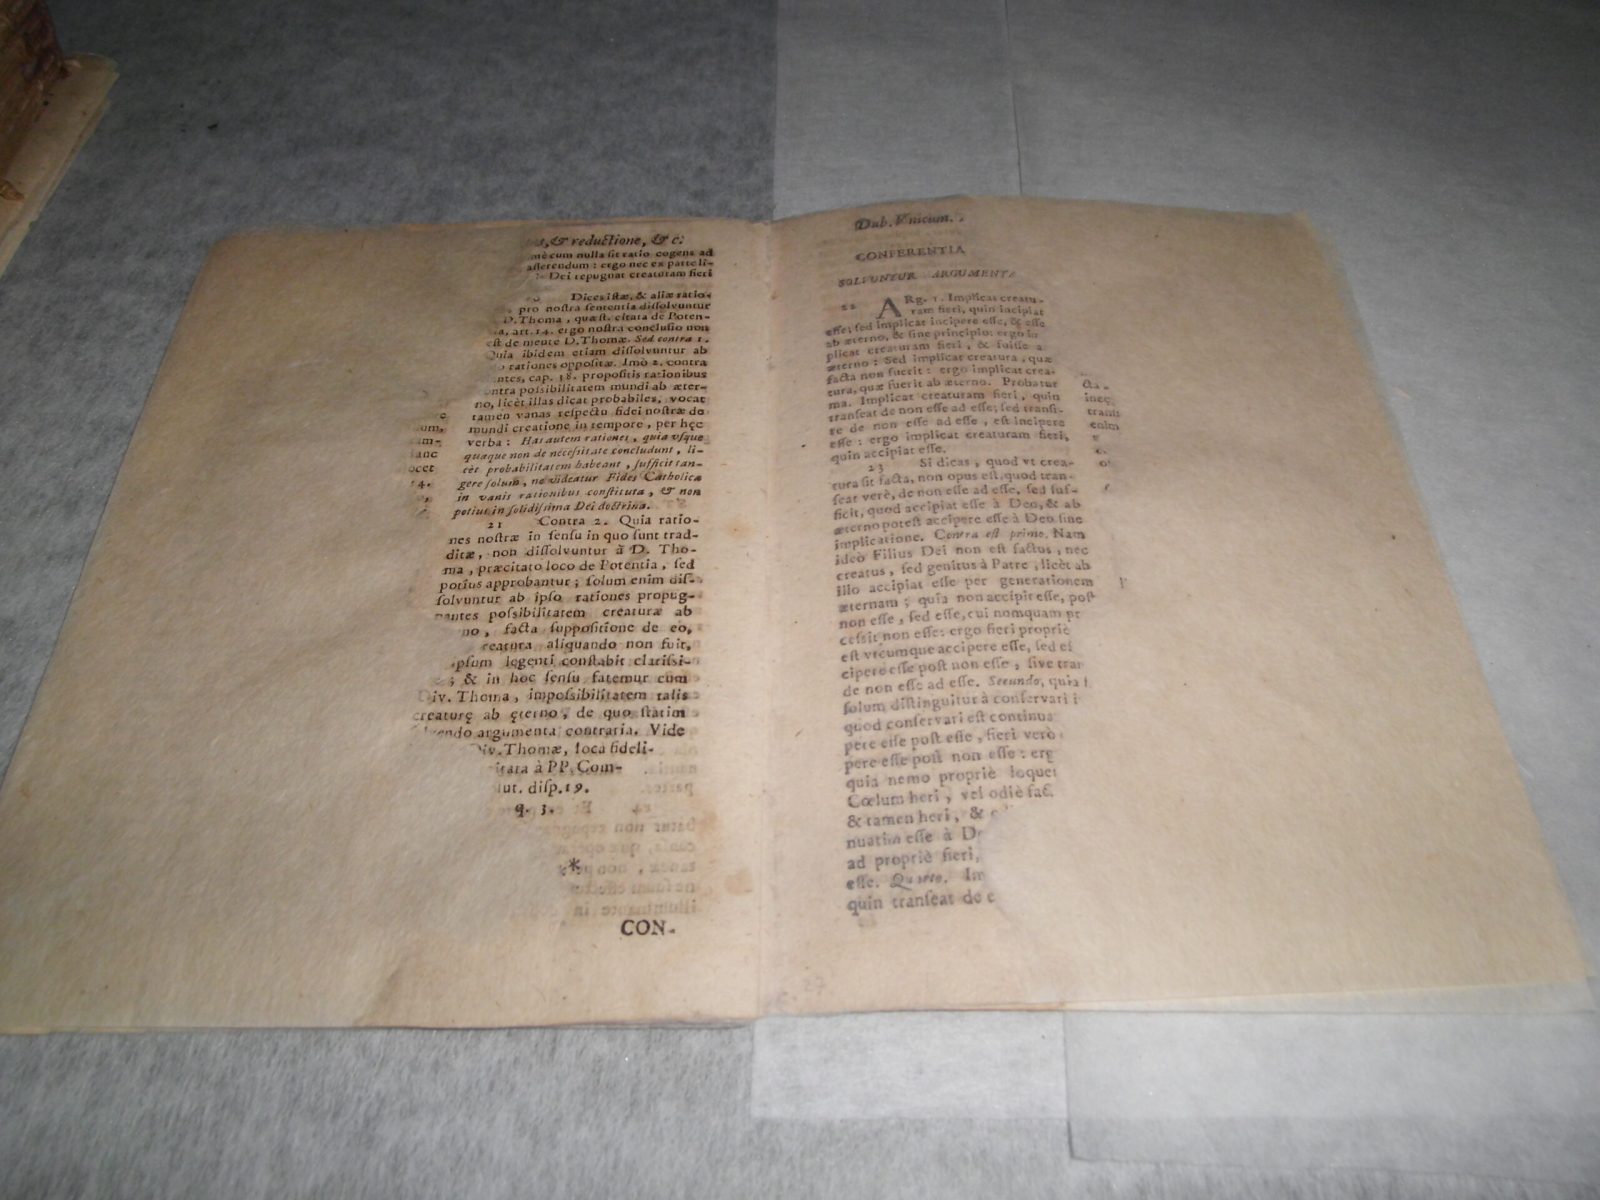 , & reductione, & c.
mè cum nulla sit ratio cogens ad
asserendum : ergo nec ex parte li-
Dei repugnat creaturam fieri
Dices istæ, & aliæ ratio-
pro nostra sententia dissolvuntur
D. Thoma, quæst. citata de Poten-
a, art. 14. ergo nostra conclusio non
est de mente D. Thomæ. Sed contra 1.
Quia ibidem etiam dissolvuntur ab
rationes oppositæ. Imò 2. contra
ntes, cap. 38. propositis rationibus
ontra possibilitatem mundi ab æter-
no, licèt illas dicat probabiles, vocat
tamèn vanas respectu fidei nostræ de
um, mundi creatione in tempore, per hęc
m- verba : Has autem rationes, quia vsque
anc quaque non de necessitate concludunt, li-
ocet cèt probabilitatem habeant, sufficit tan-
14. gere solum, ne videatur Fides Catholica
in vanis rationibus constituta, & non
potius in solidissima Dei doctrina.
21 Contra 2. Quia ratio-
nes nostræ in sensu in quo sunt trad-
ditæ, non dissolvuntur à D. Tho-
ma, præcitato loco de Potentia, sed
potius approbantur ; solum enim dis-
solvuntur ab ipso rationes propug-
nantes possibilitatem creaturæ ab
no, facta suppositione de eo,
reatura aliquando non fuit,
ipsum legenti constabit clarissi-
; & in hoc sensu fatemur cum
Div. Thoma, impossibilitatem talis
creaturę ab ęterno, de quo statim
vendo argumenta contraria. Vide
Div. Thomæ, loca fideli-
itata à PP. Com-
lut. disp. 19.
q. 3.
*
CON-
Dub. Vnicum.
CONFERENTIA
SOLVUNTUR ARGUMENTA
22 ARg. 1. Implicat creatu-
ram fieri, quin incipiat
esse; sed implicat incipere esse, & esse
ab æterno, & sine principio: ergo im
plicat creaturam fieri, & fuisse a
æterno : Sed implicat creatura, quæ
facta non fuerit : ergo implicat crea-
tura, quæ fuerit ab æterno. Probatur
ma. Implicat creaturam fieri, quin
transeat de non esse ad esse; sed transi-
re de non esse ad esse, est incipere
esse : ergo implicat creaturam fieri,
quin accipiat esse.
23 Si dicas, quod vt crea-
tura sit facta, non opus est, quod tran-
seat verè, de non esse ad esse, sed suf-
ficit, quod accipiat esse à Deo, & ab
æterno potest accipere esse à Deo sine
implicatione. Contra est primo. Nam
ideò Filius Dei non est factus, nec
creatus, sed genitus à Patre, licèt ab
illo accipiat esse per generationem
æternam ; quia non accipit esse, post
non esse, sed esse, cui nomquam pr
cessit non esse: ergo fieri propriè
est vtcumque accipere esse, sed es
cipere esse post non esse, sive tran
de non esse ad esse. Secundo, quia
solum distinguitur à conservari i
quod conservari est continua
pere esse post esse, fieri verò
pere esse post non esse : erg
quia nemo propriè loquet
Cœlum heri, vel odiè fac
& tamen heri, &
nuatim esse à De
ad propriè fieri,
esse. Quarto. Im
quin transeat de e
cta-
ineç
transi
enim
27